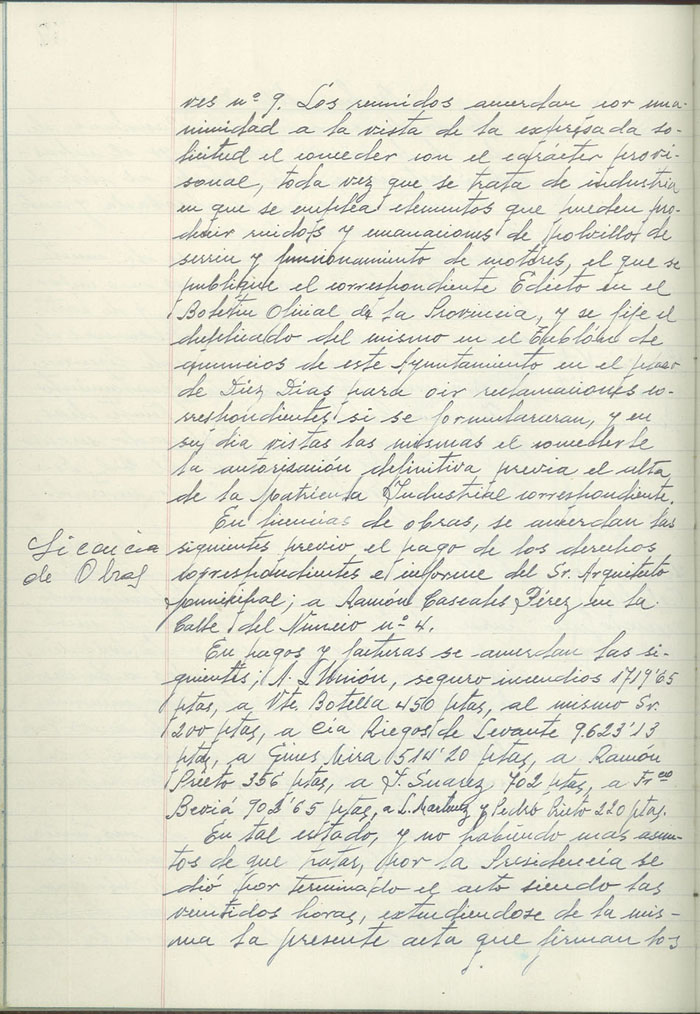 ves nº 9. Los reunidos acuerdan por una-
nimidad a la vista de la expresada so-
licitud el conceder con el carácter provi-
sonal, toda vez que se trata de industria
en que se emplea elementos que pueden pro-
ducir ruidos y emanaciones de polvillos de
serrin y funcionamiento de motores, el que se
publique el correspondiente Edicto en el
Boletin Oficial de la Provincia, y se fije el
duplicado del mismo en el Tablón de
anuncios de este Ayuntamiento en el plazo
de Diez Dias para oir reclamaciones co-
rrespondientes si se formularan, y en
su dia vistas las mismas el concederle
la autorización definitiva previa el alta
de la matricula Industrial correspondiente.
En licencias de obras, se acuerdan las
Licencia
de Obras
siguientes previo el pago de los derechos
correspondientes e informe del Sr. Arquitecto
municipal; a Ramón Cascales Pérez en la
Calle del Nuncio nº 4.
En pagos y facturas se acuerdan las si-
guientes, A. L'Unión, seguro incendios 1719'65
ptas, a Vte. Botella 450 ptas, al mismo Sr.
200 ptas, a Cia Riegos de Levante 9.623'13
ptas, a Gines Mira 514'20 ptas, a Ramón
Prieto 356 ptas, a J. Suarez 702 ptas, a Frco
Beviá 702'65 ptas, a L. Martinez y Pedro Prieto 220 ptas.
En tal estado, y no habiendo mas asun-
tos de que tratas, por la Presidencia se
dió por terminado el acto siendo las
veintidos horas, extendiendose de la mis-
ma la presente acta que firman los